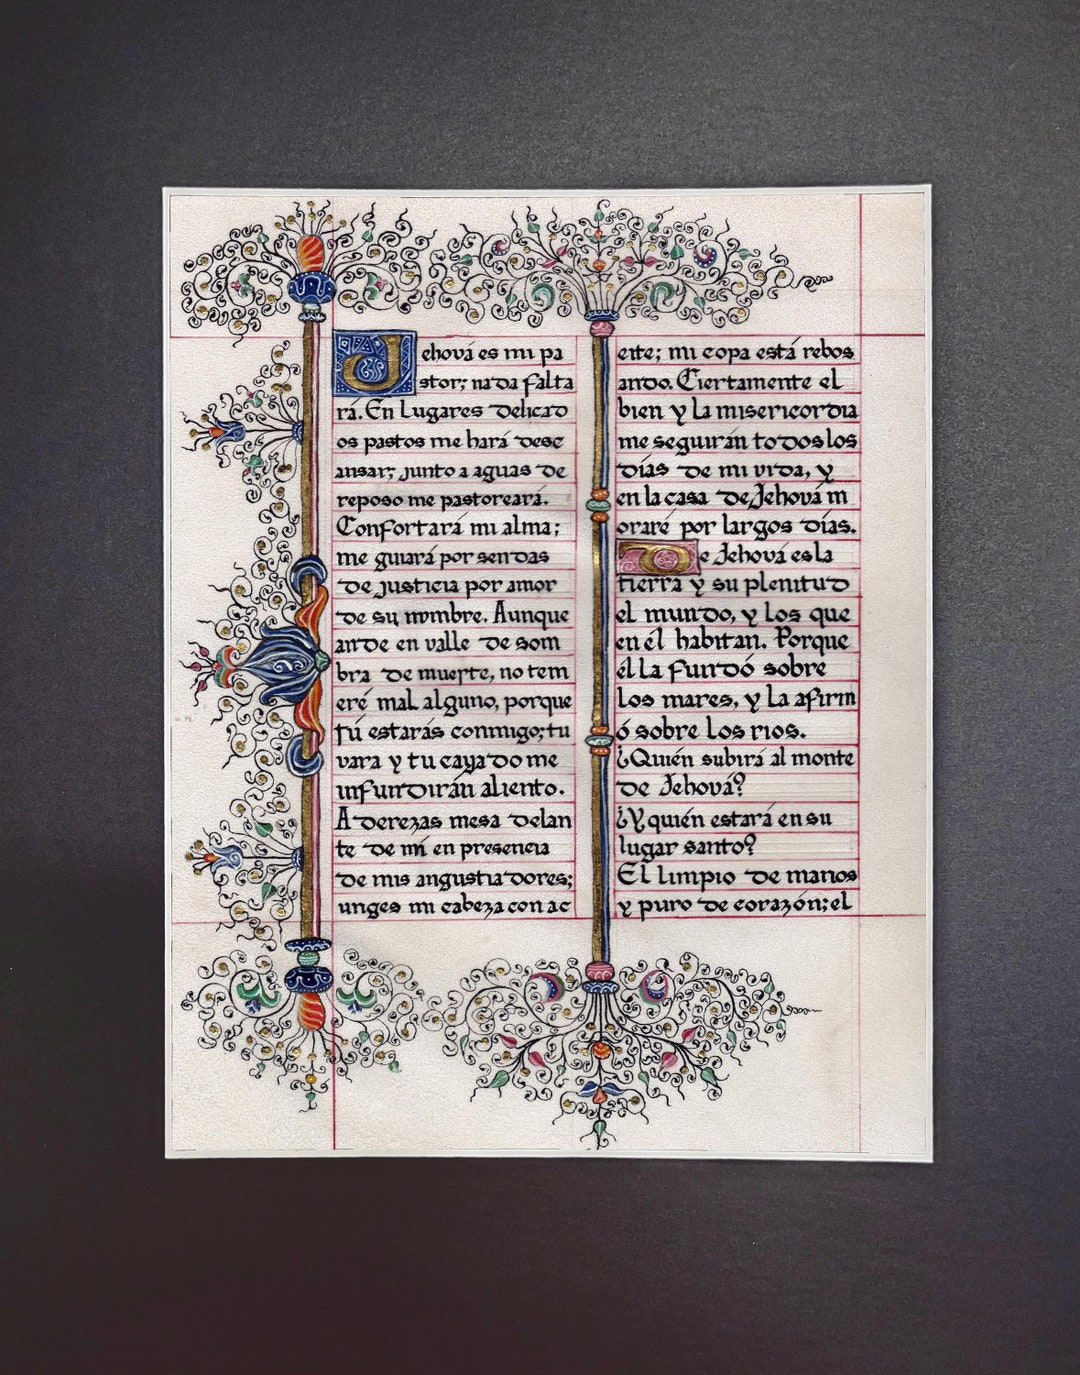 Jehová es mi pa
stor; nada falta
rá. En lugares delicad
os pastos me hará desc
ansar; junto a aguas de
reposo me pastoreará.
Confortará mi alma;
me guiará por sendas
de justicia por amor
de su nombre. Aunque
ande en valle de som
bra de muerte, no tem
eré mal alguno, porque
tú estarás conmigo; tu
vara y tu cayado me
infundirán aliento.
Aderezas mesa delan
te de mí en presencia
de mis angustiadores;
unges mi cabeza con ac
eite; mi copa está rebos
ando. Ciertamente el
bien y la misericordia
me seguirán todos los
días de mi vida, y
en la casa de Jehová m
oraré por largos días.
De Jehová es la
tierra y su plenitud
el mundo, y los que
en él habitan. Porque
él la fundó sobre
los mares, y la afirm
ó sobre los rios.
¿Quién subirá al monte
de Jehová?
¿Y quién estará en su
lugar santo?
El limpio de manos
y puro de corazón; el